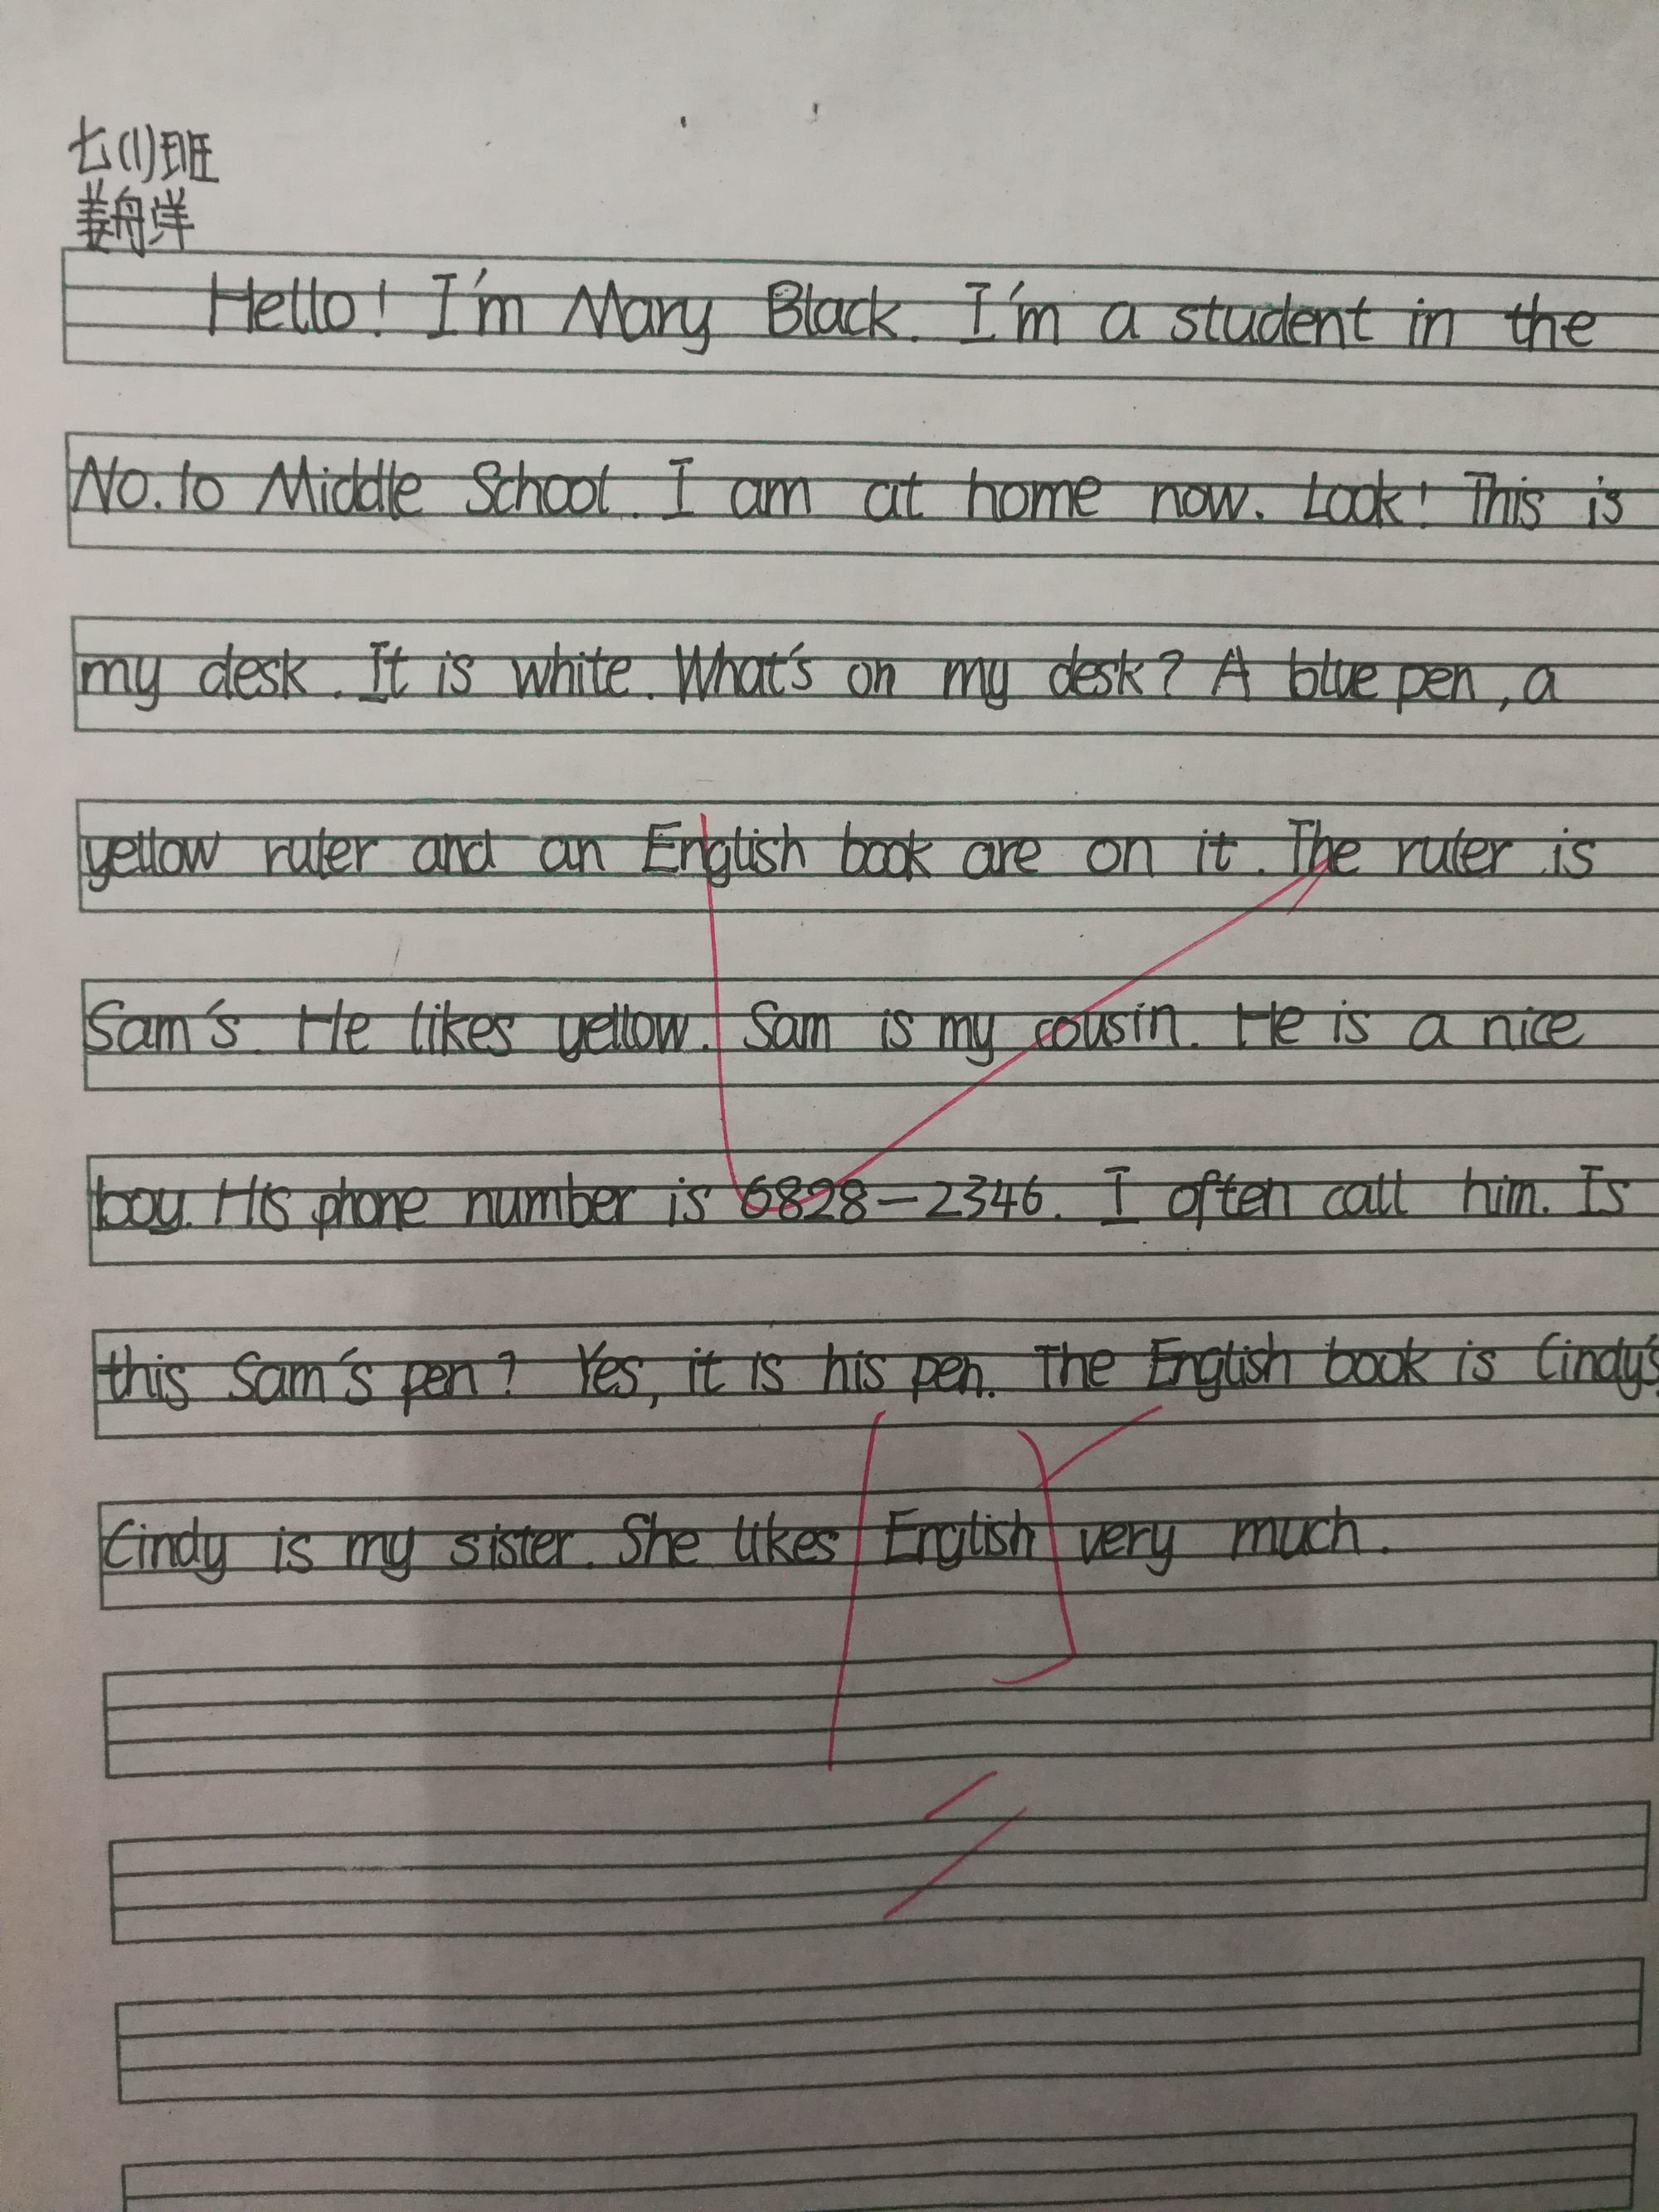 七(1)班
姜舟洋
Hello! I'm Mary Black. I'm a student in the
No. to Middle School. I am at home now. Look! This is
my desk. It is white. What's on my desk? A blue pen, a
yellow ruler and an English book are on it. The ruler is
Sam's. He likes yellow. Sam is my cousin. He is a nice
boy. His phone number is 6828-2346. I often call him. Is
this Sam's pen? Yes, it is his pen. The English book is Cindy's.
Cindy is my sister. She likes English very much.